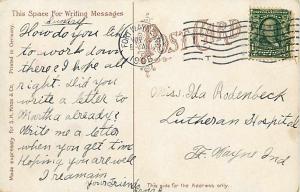 This Space For Writing Messages
Sunday
How do you like
to work down
there I hope all
right. Did you
write a letter to
Martha already?
Write me a letter
when you get time
Hoping you are well
I remain
Your Friend
Printed in Germany
Made expressly for S.H. Knox & Co.
POST CARD
FORT WAYNE
1908
Miss Ida Rodenbeck
Lutheran Hospital
Ft. Wayne Ind
This side for the Address only.